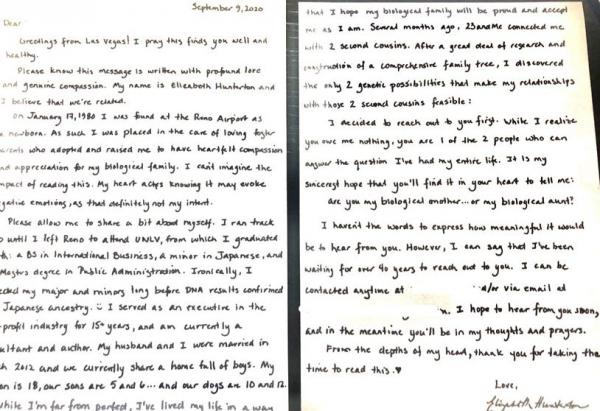 September 9, 2020
Dear
Greetings from Las Vegas! I pray this finds you well and
healthy.
Please know this message is written with profound love
and genuine compassion. My name is Elizabeth Hunterton and
I believe that we're related.
On January 17, 1980 I was found at the Reno Airport as
a newborn. As such I was placed in the care of loving foster
parents who adopted and raised me to have heartfelt compassion
and appreciation for my biological family. I can't imagine the
impact of reading this. My heart aches knowing it may evoke
negative emotions, as that definitely not my intent.
Please allow me to share a bit about myself. I ran track
until I left Reno to attend UNLV, from which I graduated
with: a BS in International Business, a minor in Japanese, and
Masters degree in Public Administration. Ironically, I
selected my major and minors long before DNA results confirmed
Japanese ancestry. I served as an executive in the
profit industry for 15+ years, and am currently a
consultant and author. My husband and I were married in
2012 and we currently share a home full of boys. My
son is 18, our sons are 5 and 6... and our dogs are 10 and 12.
While I'm far from perfect, I've lived my life in a way
that I hope my biological family will be proud and accept
me as I am. Several months ago, 23andMe connected me
with 2 second cousins. After a great deal of research and
construction of a comprehensive family tree, I discovered
the only 2 genetic possibilities that make my relationships
with those 2 second cousins feasible:
I decided to reach out to you first. While I realize
you owe me nothing, you are 1 of the 2 people who can
answer the question I've had my entire life. It is my
sincerest hope that you'll find it in your heart to tell me:
are you my biological mother... or my biological aunt?
I haven't the words to express how meaningful it would
be to hear from you. However, I can say that I've been
waiting for over 40 years to reach out to you. I can be
contacted anytime at d/or via email at
n. I hope to hear from you soon,
and in the meantime you'll be in my thoughts and prayers.
From the depths of my head, thank you for taking the
time to read this.♥
Love,
Elizabeth Hunterton